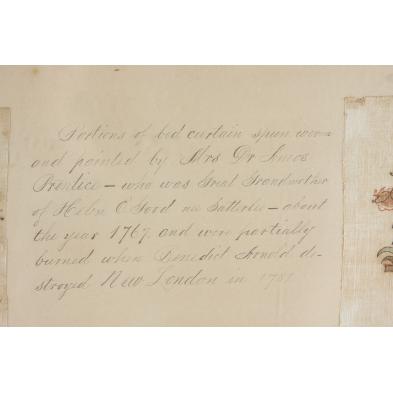 Portions of bed curtain spun wove
and painted by Mrs Dr Amos
Prentice - who was Great Grandmother
of Helen C Ford nee Satterlee - about
the year 1767, and were partially
burned when Benedict Arnold de-
stroyed New London in 1781